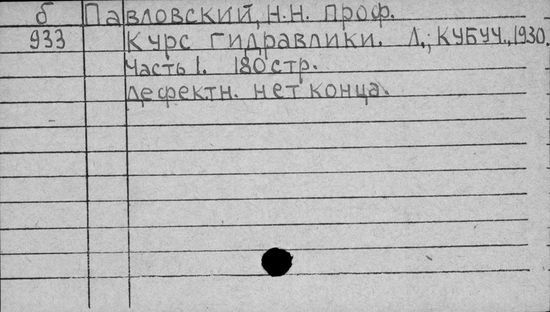 б Павловский, Н.Н. проф.
933 Курс гидравлики. Л.; КУБУЧ., 1930.
Часть 1. 180 стр.
Дефектн. нет конца.